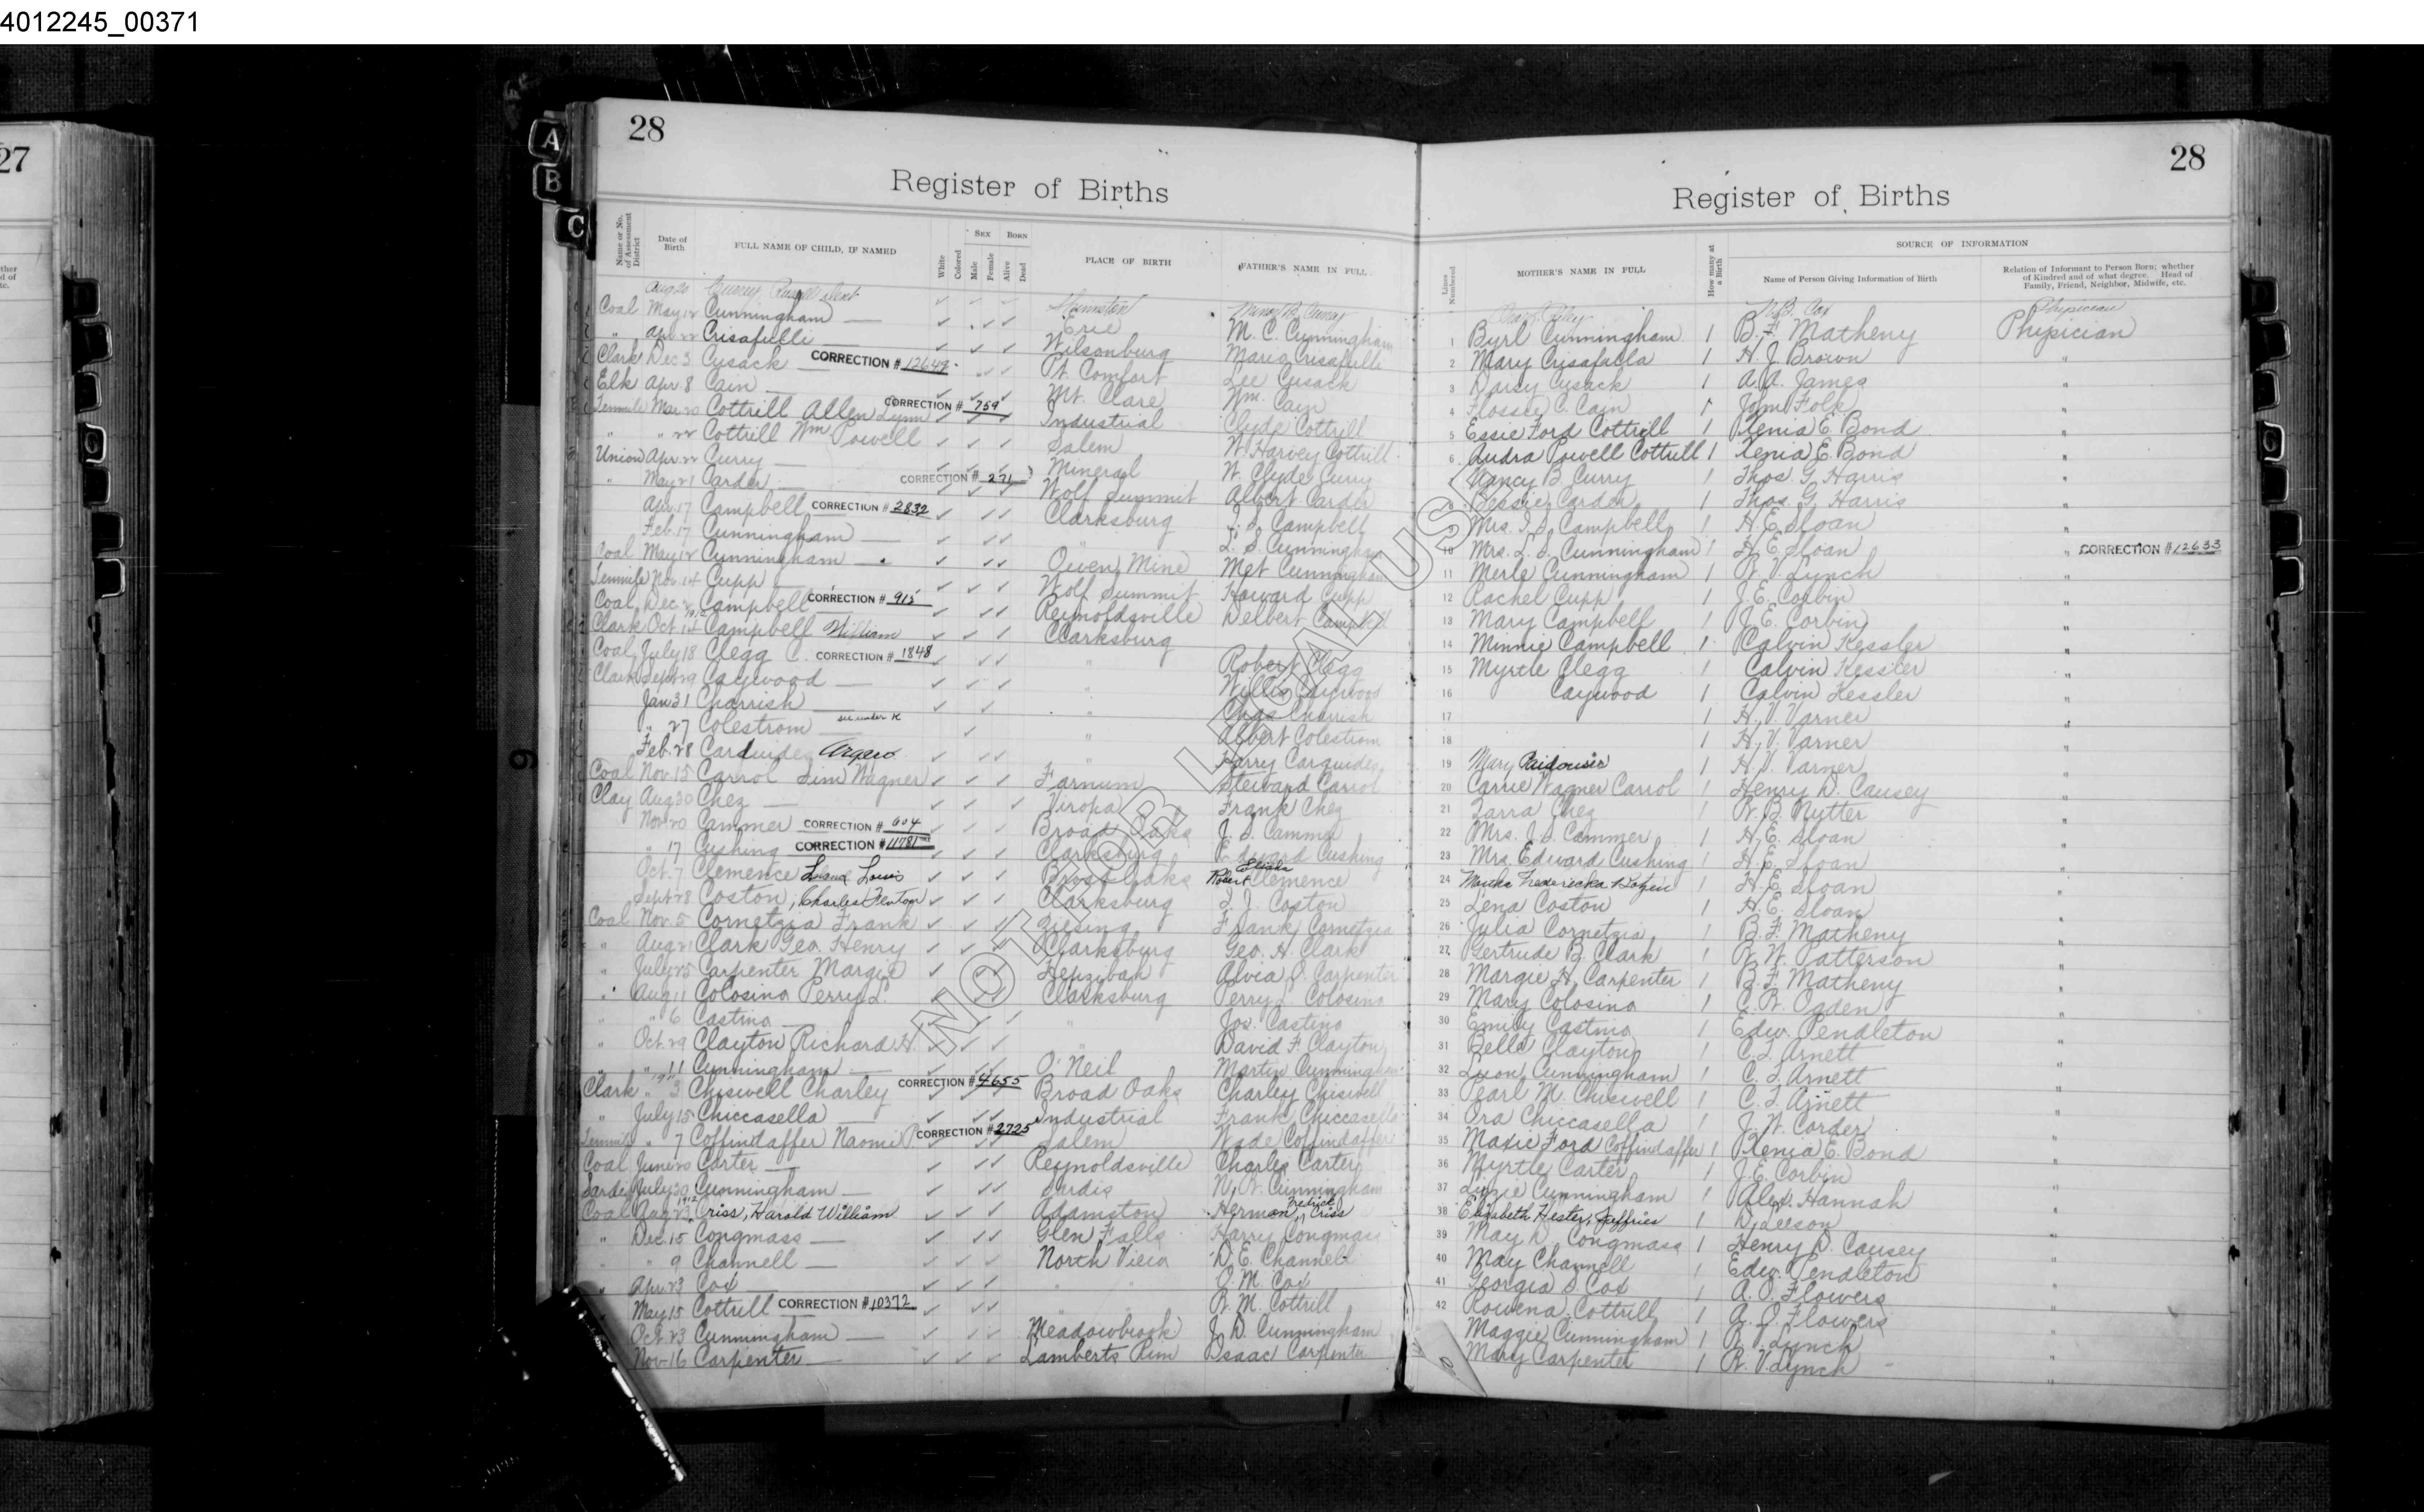 4012245_00371
27
28
Register of Births
Name or No. of Assessment District
Date of Birth
FULL NAME OF CHILD, IF NAMED
White
Colored
SEX
Male
Female
BORN
Alive
Dead
PLACE OF BIRTH
FATHER'S NAME IN FULL
A
B
C
Aug 20
Coal May 12 Cunningham — Erie M. C. Cunningham
" Apr 22 Crisafulli — Wilsonburg Mario Crisafulli
Clark Dec 3 Cusack CORRECTION # 12649 Pt. Comfort Lee Cusack
Elk Apr. 8 Cain — Mt. Clare Wm. Cain
Tenmile Mar 20 Cottrill Allen Lynn CORRECTION # 759 Industrial Clyde Cottrill
" " 22 Cottrill Wm Powell Salem W. Harvey Cottrill
Union Apr. 22 Curry — Mineral W. Clyde Curry
" May 21 Carder — CORRECTION # 271 Wolf Summit Albert Carder
Apr. 17 Campbell CORRECTION # 2832 Clarksburg Campbell
Feb. 17 Cunningham — " L. S. Cunningham
Coal May 12 Cunningham — Owen Mine Met Cunningham
Tenmile Nov. 14 Cupp — Wolf Summit Howard Cupp
Coal Dec Campbell CORRECTION # 915 Reynoldsville Delbert Campbell
Clark Oct. 14 1912 Campbell William Clarksburg
Coal July 18 Clegg C. CORRECTION # 1848 " Robert Clegg
Clark Sept 29 Caywood — " Willis Caywood
Jan 31 Charrish — " Chas Charrish
" 27 Colestrom — see under K " Albert Colestrom
Feb. 28 Argero " Harry
Coal Nov. 15 Carrol Jim Wagner Farnum Steward Carrol
Clay Aug 30 Chez — Viropa Frank Chez
Nov. 20 Cammer CORRECTION # 604 Broad Oaks J. S. Cammer
" 17 Cushing CORRECTION # 11781 Clarksburg Edward Cushing
Oct. 7 Clemence Louis Broad Oaks Robert Elisha Clemence
Sept 28 Coston, Charles Fenton Clarksburg S. J. Coston
Coal Nov. 5 Cornetzia Frank Ziesing Frank Cornetzia
" Aug 21 Clark Geo. Henry Clarksburg Geo. H. Clark
" July 25 Carpenter Margie Hepzibah Alvia Carpenter
" Aug 11 Colosino Perry L. Clarksburg Perry L. Colosino
" " 6 Castino — " Jos. Castino
" Oct. 29 Clayton Richard H. " David F. Clayton
" " 11 Cunningham — O'Neil Martin Cunningham
Clark " 3 Chiswell Charley CORRECTION # 4655 Broad Oaks Charley Chiswell
" July 15 Chiccasella — Industrial Frank Chiccasella
Tenmile " 7 Coffindaffer Naomi CORRECTION # 2725 Salem Wade Coffindaffer
Coal June 20 Carter — Reynoldsville Charles Carter
Sardis July 30 Cunningham — Sardis Cunningham
Coal Aug 23, 1912 Criss, Harold William Adamston Herman Fredrick Criss
" Dec. 15 Congmass — Glen Falls Harry Congmass
" " 9 Channell — North View D. E. Channell
" Apr. 23 Cox — " " O. M. Cox
May 15 Cottrill CORRECTION # 10372 " " R. M. Cottrill
Oct. 23 Cunningham — Meadowbrook J. D. Cunningham
Nov. 16 Carpenter — Lamberts Run Isaac Carpenter
28
Register of Births
Lines Numbered
MOTHER'S NAME IN FULL
How many at a Birth
SOURCE OF INFORMATION
Name of Person Giving Information of Birth
Relation of Informant to Person Born; whether of Kindred and of what degree. Head of Family, Friend, Neighbor, Midwife, etc.
Physician
1 Byrl Cunningham 1 B. F. Matheny Physician
2 Mary Crisafulla 1 H. J. Brown "
3 Daisy Cusack 1 A. A. James "
4 Flossie C. Cain 1 John Folk "
5 Essie Ford Cottrill 1 Xenia E. Bond "
6 Audra Powell Cottrill 1 Xenia E. Bond "
Nancy B. Curry 1 Thos. G. Harris "
Bessie Carder 1 Thos. G. Harris "
Mrs. Campbell 1 H. E. Sloan "
10 Mrs. L. S. Cunningham 1 H. E. Sloan " CORRECTION # 12633
11 Merle Cunningham 1 R. V. Lynch "
12 Rachel Cupp 1 J. E. Corbin "
13 Mary Campbell 1 J. E. Corbin "
14 Minnie Campbell 1 Calvin Kessler "
15 Myrtle Clegg 1 Calvin Kessler "
16 Caywood 1 Calvin Kessler "
17 1 H. V. Varner "
18 1 H. V. Varner "
19 Mary 1 H. V. Varner "
20 Carrie Wagner Carrol 1 Henry D. Causey "
21 Zarra Chez 1 R. B. Nutter "
22 Mrs. J. S. Cammer 1 H. E. Sloan "
23 Mrs. Edward Cushing 1 H. E. Sloan "
24 Martha Fredericka 1 H. E. Sloan "
25 Lena Coston 1 H. E. Sloan "
26 Julia Cornetzia 1 B. F. Matheny "
27 Gertrude B. Clark 1 R. W. Patterson "
28 Margie H. Carpenter 1 B. F. Matheny "
29 Mary Colosino 1 C. R. Ogden "
30 Emily Castino 1 Edw. Pendleton "
31 Belle Clayton 1 C. L. Arnett "
32 Cunningham 1 C. L. Arnett "
33 Pearl M. Chiswell 1 C. L. Arnett "
34 Ora Chiccasella 1 J. W. Corder "
35 Maxie Ford Coffindaffer 1 Xenia E. Bond "
36 Myrtle Carter 1 J. E. Corbin "
37 Lizzie Cunningham 1 Alex. Hannah "
38 Elizabeth Hester, Jeffries 1 D. Leeson "
39 May D. Congmass 1 Henry D. Causey "
40 May Channell 1 Edw. Pendleton "
41 Georgia S Cox 1 A. O. Flowers "
42 Rowena Cottrill 1 A. O. Flowers "
Maggie Cunningham 1 R. V. Lynch "
Mary Carpenter 1 R. V. Lynch "
NOT FOR LEGAL USE